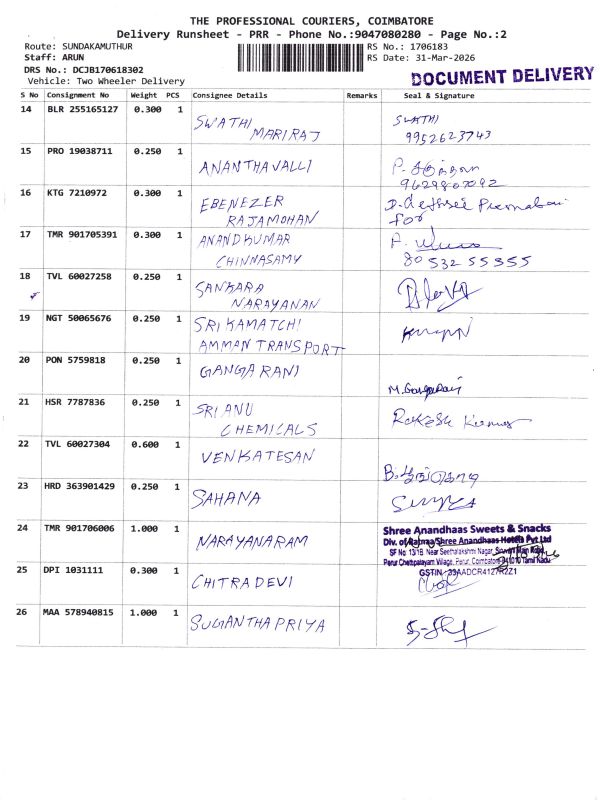 THE PROFESSIONAL COURIERS, COIMBATORE
Delivery Runsheet - PRR - Phone No.:9047080280 - Page No.:2
Route: SUNDAKAMUTHUR
RS No.: 1706183
Staff: ARUN
RS Date: 31-Mar-2026
DRS No.: DCJB170618302
Vehicle: Two Wheeler Delivery
DOCUMENT DELIVERY
S No Consignment No Weight PCS Consignee Details Remarks Seal & Signature
14 BLR 255165127 0.300 1 SWATHI MARIRAJ SWATHI
9952623743
15 PRO 19038711 0.250 1 ANANTHAVALLI P.
16 KTG 7210972 0.300 1 EBENEZER RAJAMOHAN
for
17 TMR 901705391 0.300 1 ANANDKUMAR CHINNASAMY P.
80532 55355
18 TVL 60027258 0.250 1 SANKARA NARAYANAN
19 NGT 50065676 0.250 1 SRI KAMATCHI AMMAN TRANSPORT
20 PON 5759818 0.250 1 GANGA RANI
21 HSR 7787836 0.250 1 SRI ANU CHEMICALS Rakesh Kumar
22 TVL 60027304 0.600 1 VENKATESAN
23 HRD 363901429 0.250 1 SAHANA
24 TMR 901706006 1.000 1 NARAYANARAM Shree Anandhaas Sweets & Snacks
Shree Anandhaas Hotels Pvt Ltd
SF No: 13/1B Near Seethalakshmi Nagar,
Perur Chettipalayam Village, Perur, Tamil Nadu
25 DPI 1031111 0.300 1 CHITRADEVI
26 MAA 578940815 1.000 1 SUGANTHAPRIYA